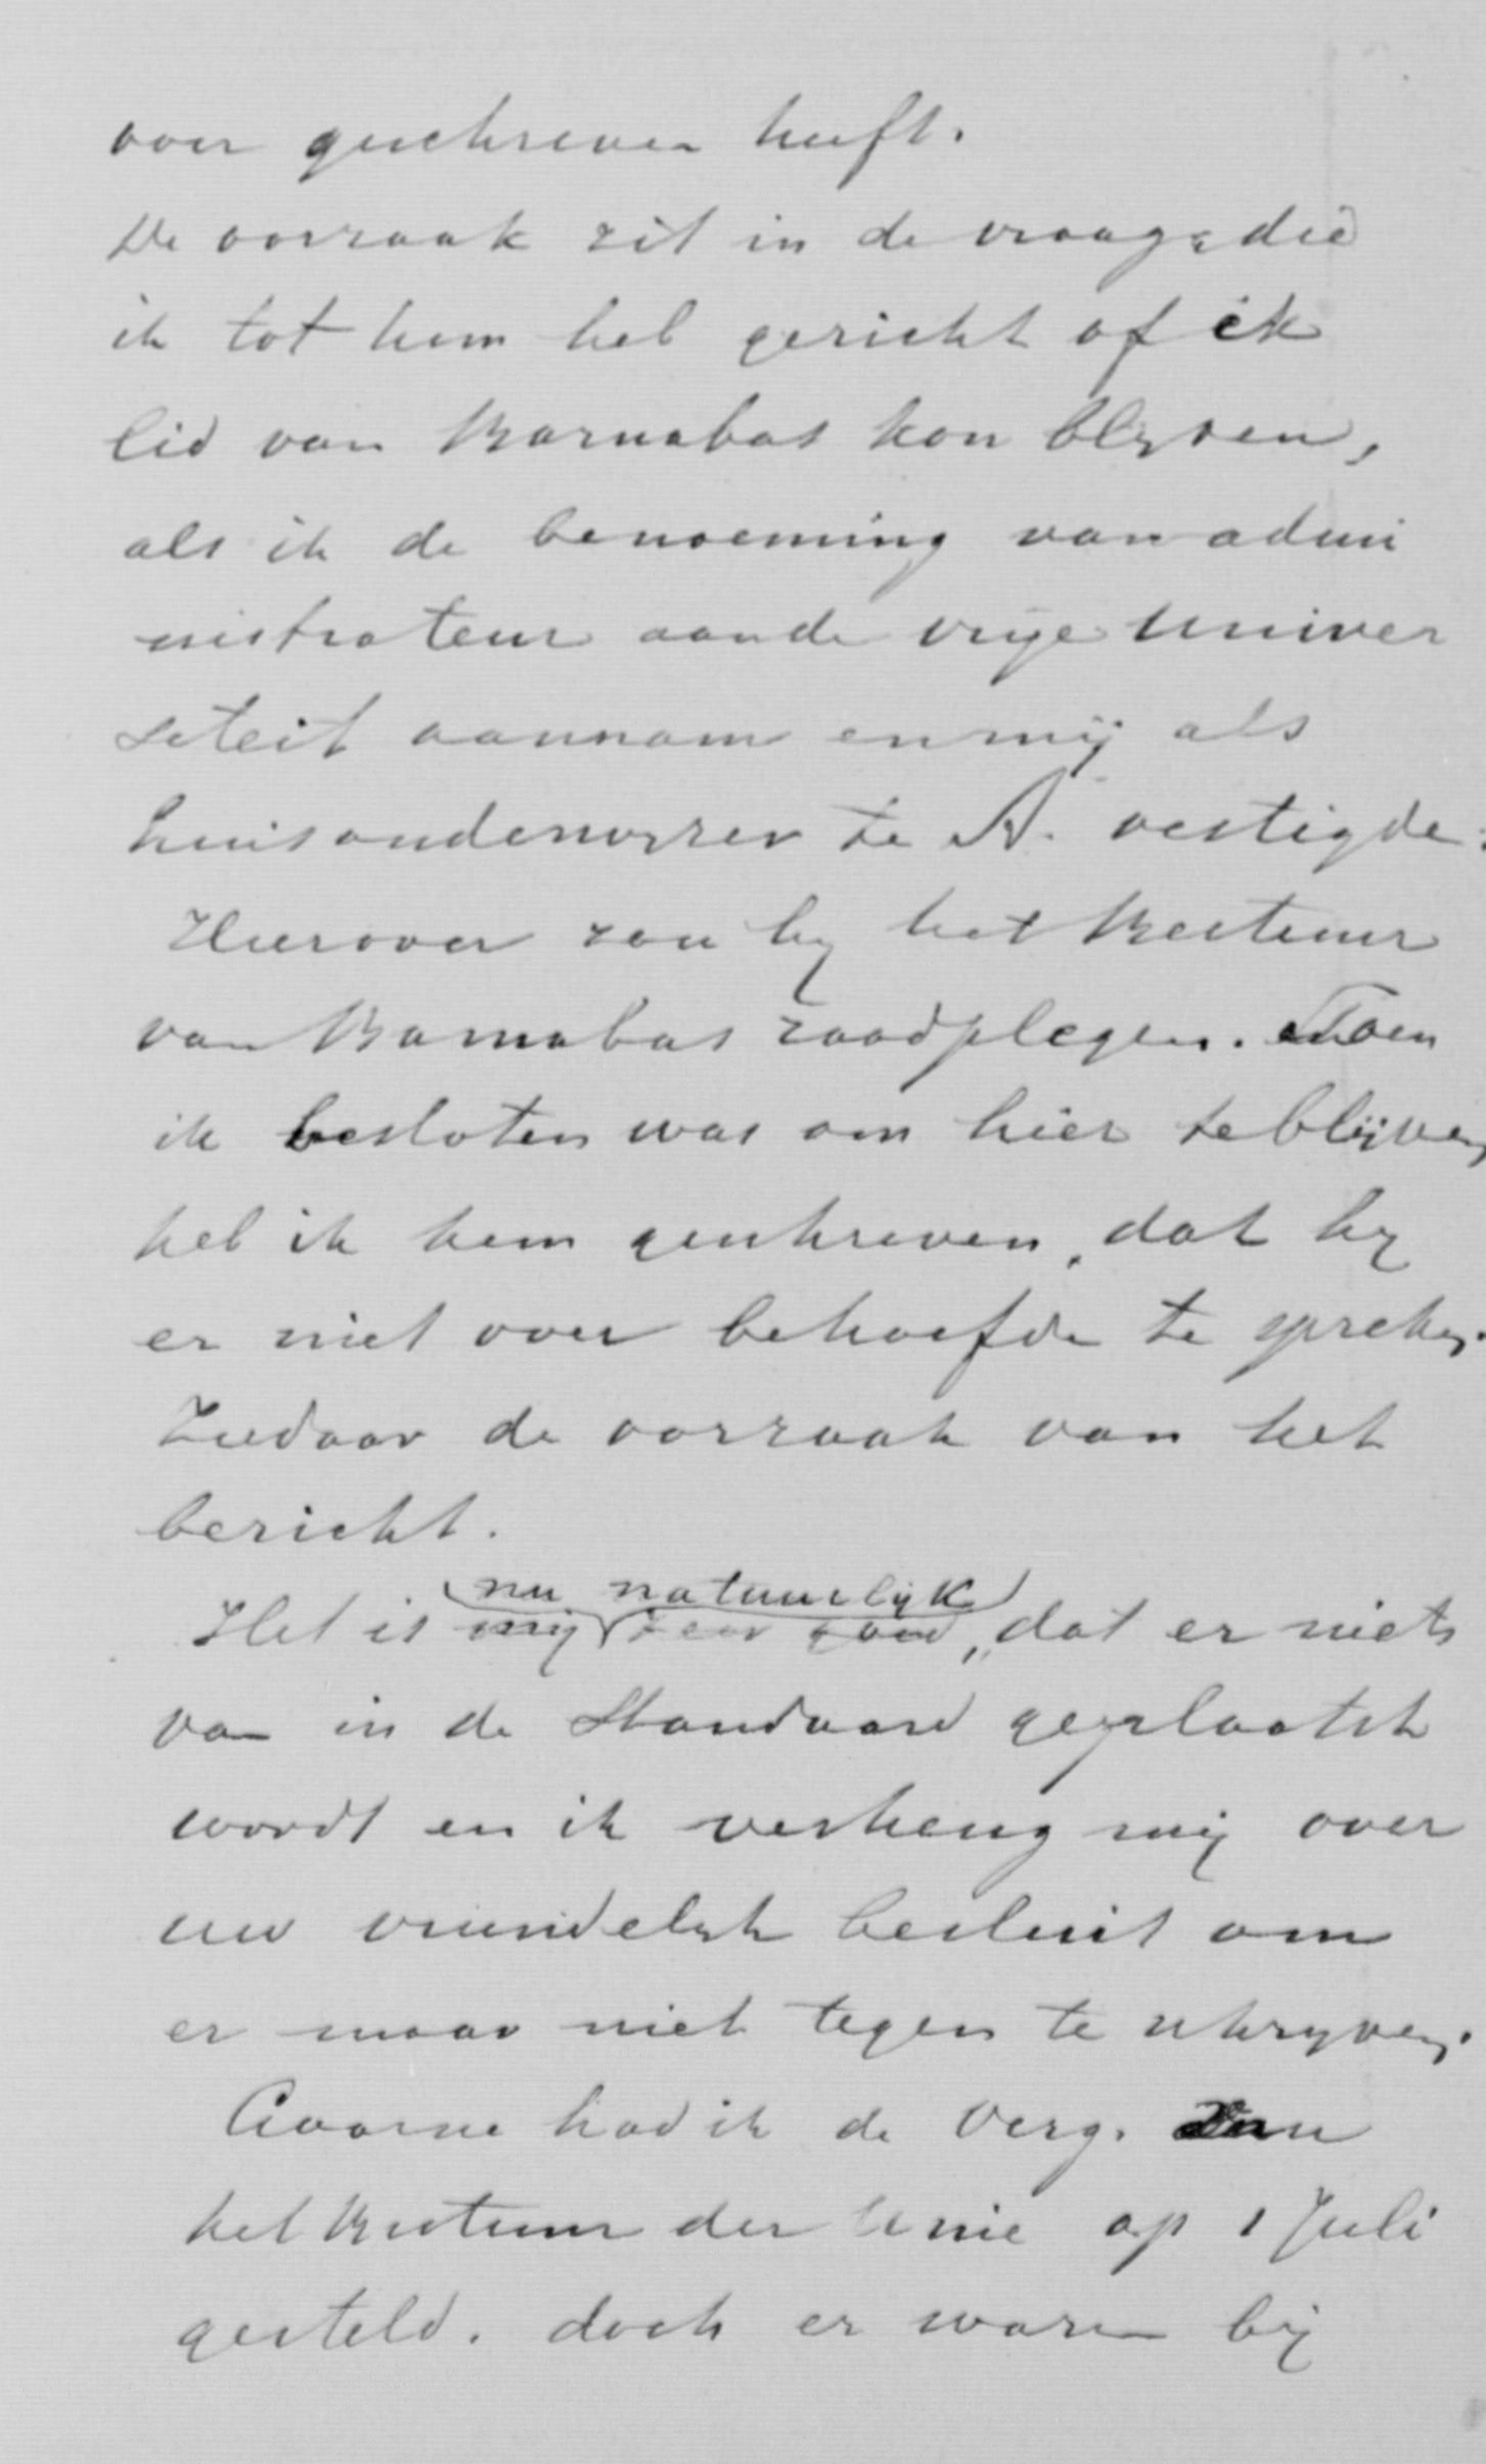 over geschreven heeft.
De oorzaak zit in de vraag, die
ik tot hem heb gericht of ik
lid van Barnabas kon blyven,
als ik de benoeming van admi
nistrateur aan de vrije Univer
siteit aannam en mij als
huisonderwyzer te A. vestigde.
Hierover zou hy het Bestuur
van Barnabas raadplegen. Toen
ik besloten was om hier te blijven
heb ik hem geschreven, dat hy
er niet over behoefde te spreken.
Ziedaar de oorzaak van het
bericht.
nu natuurlijk
Het is mij zeer goed, dat er niets
van in de Standaard geplaatst
wordt en ik verheug mij over
uw vriendelyk besluit om
er maar niet tegen te schryven.
Gaarne had ik de Verg. van
het Bestuur der Unie op 1 Juli
gesteld. doch er waren bij